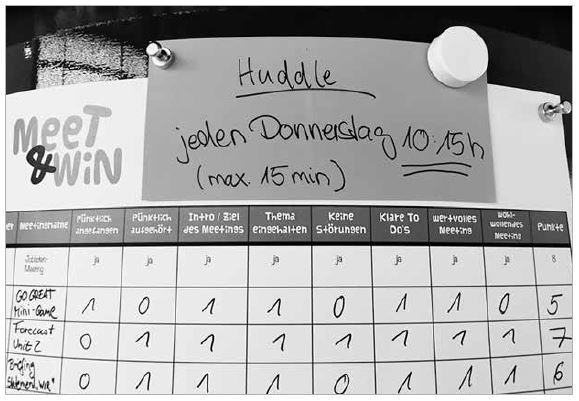 Huddle
jeden Donnerstag 10:15h
(max. 15 min)
MeeT
&WiN
er Meetingsname Pünktlich angefangen Pünktlich aufgehört Intro / Ziel des Meetings Thema eingehalten Keine Störungen Klare To Do's wertvolles Meeting wohl-wollendes Meeting Punkte
ja ja ja ja ja ja ja ja 8
GO GREAT Mini-Game 1 0 1 1 0 1 1 0 5
Forecast Unit 2 0 1 1 1 1 1 1 1 7
0 1 1 1 0 1 1 1 6